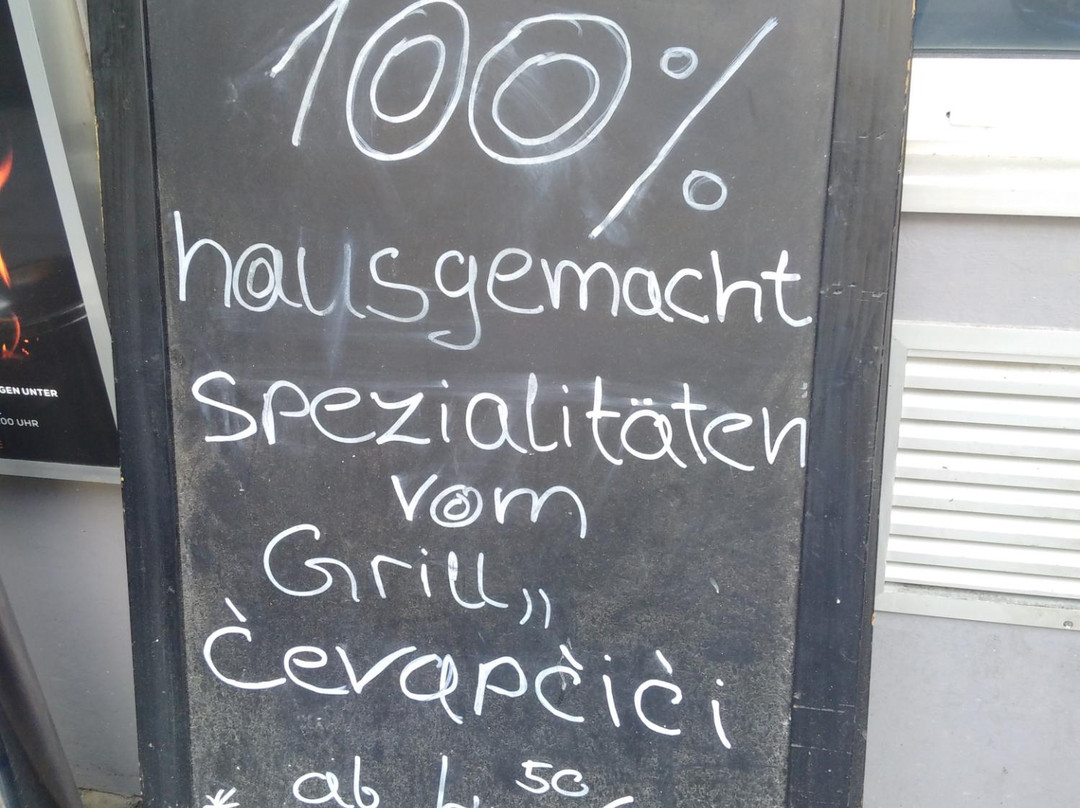 100%
hausgemacht
Spezialitäten
vom
Grill„
Čevapčići
* ab 50
GEN UNTER
00 UHR